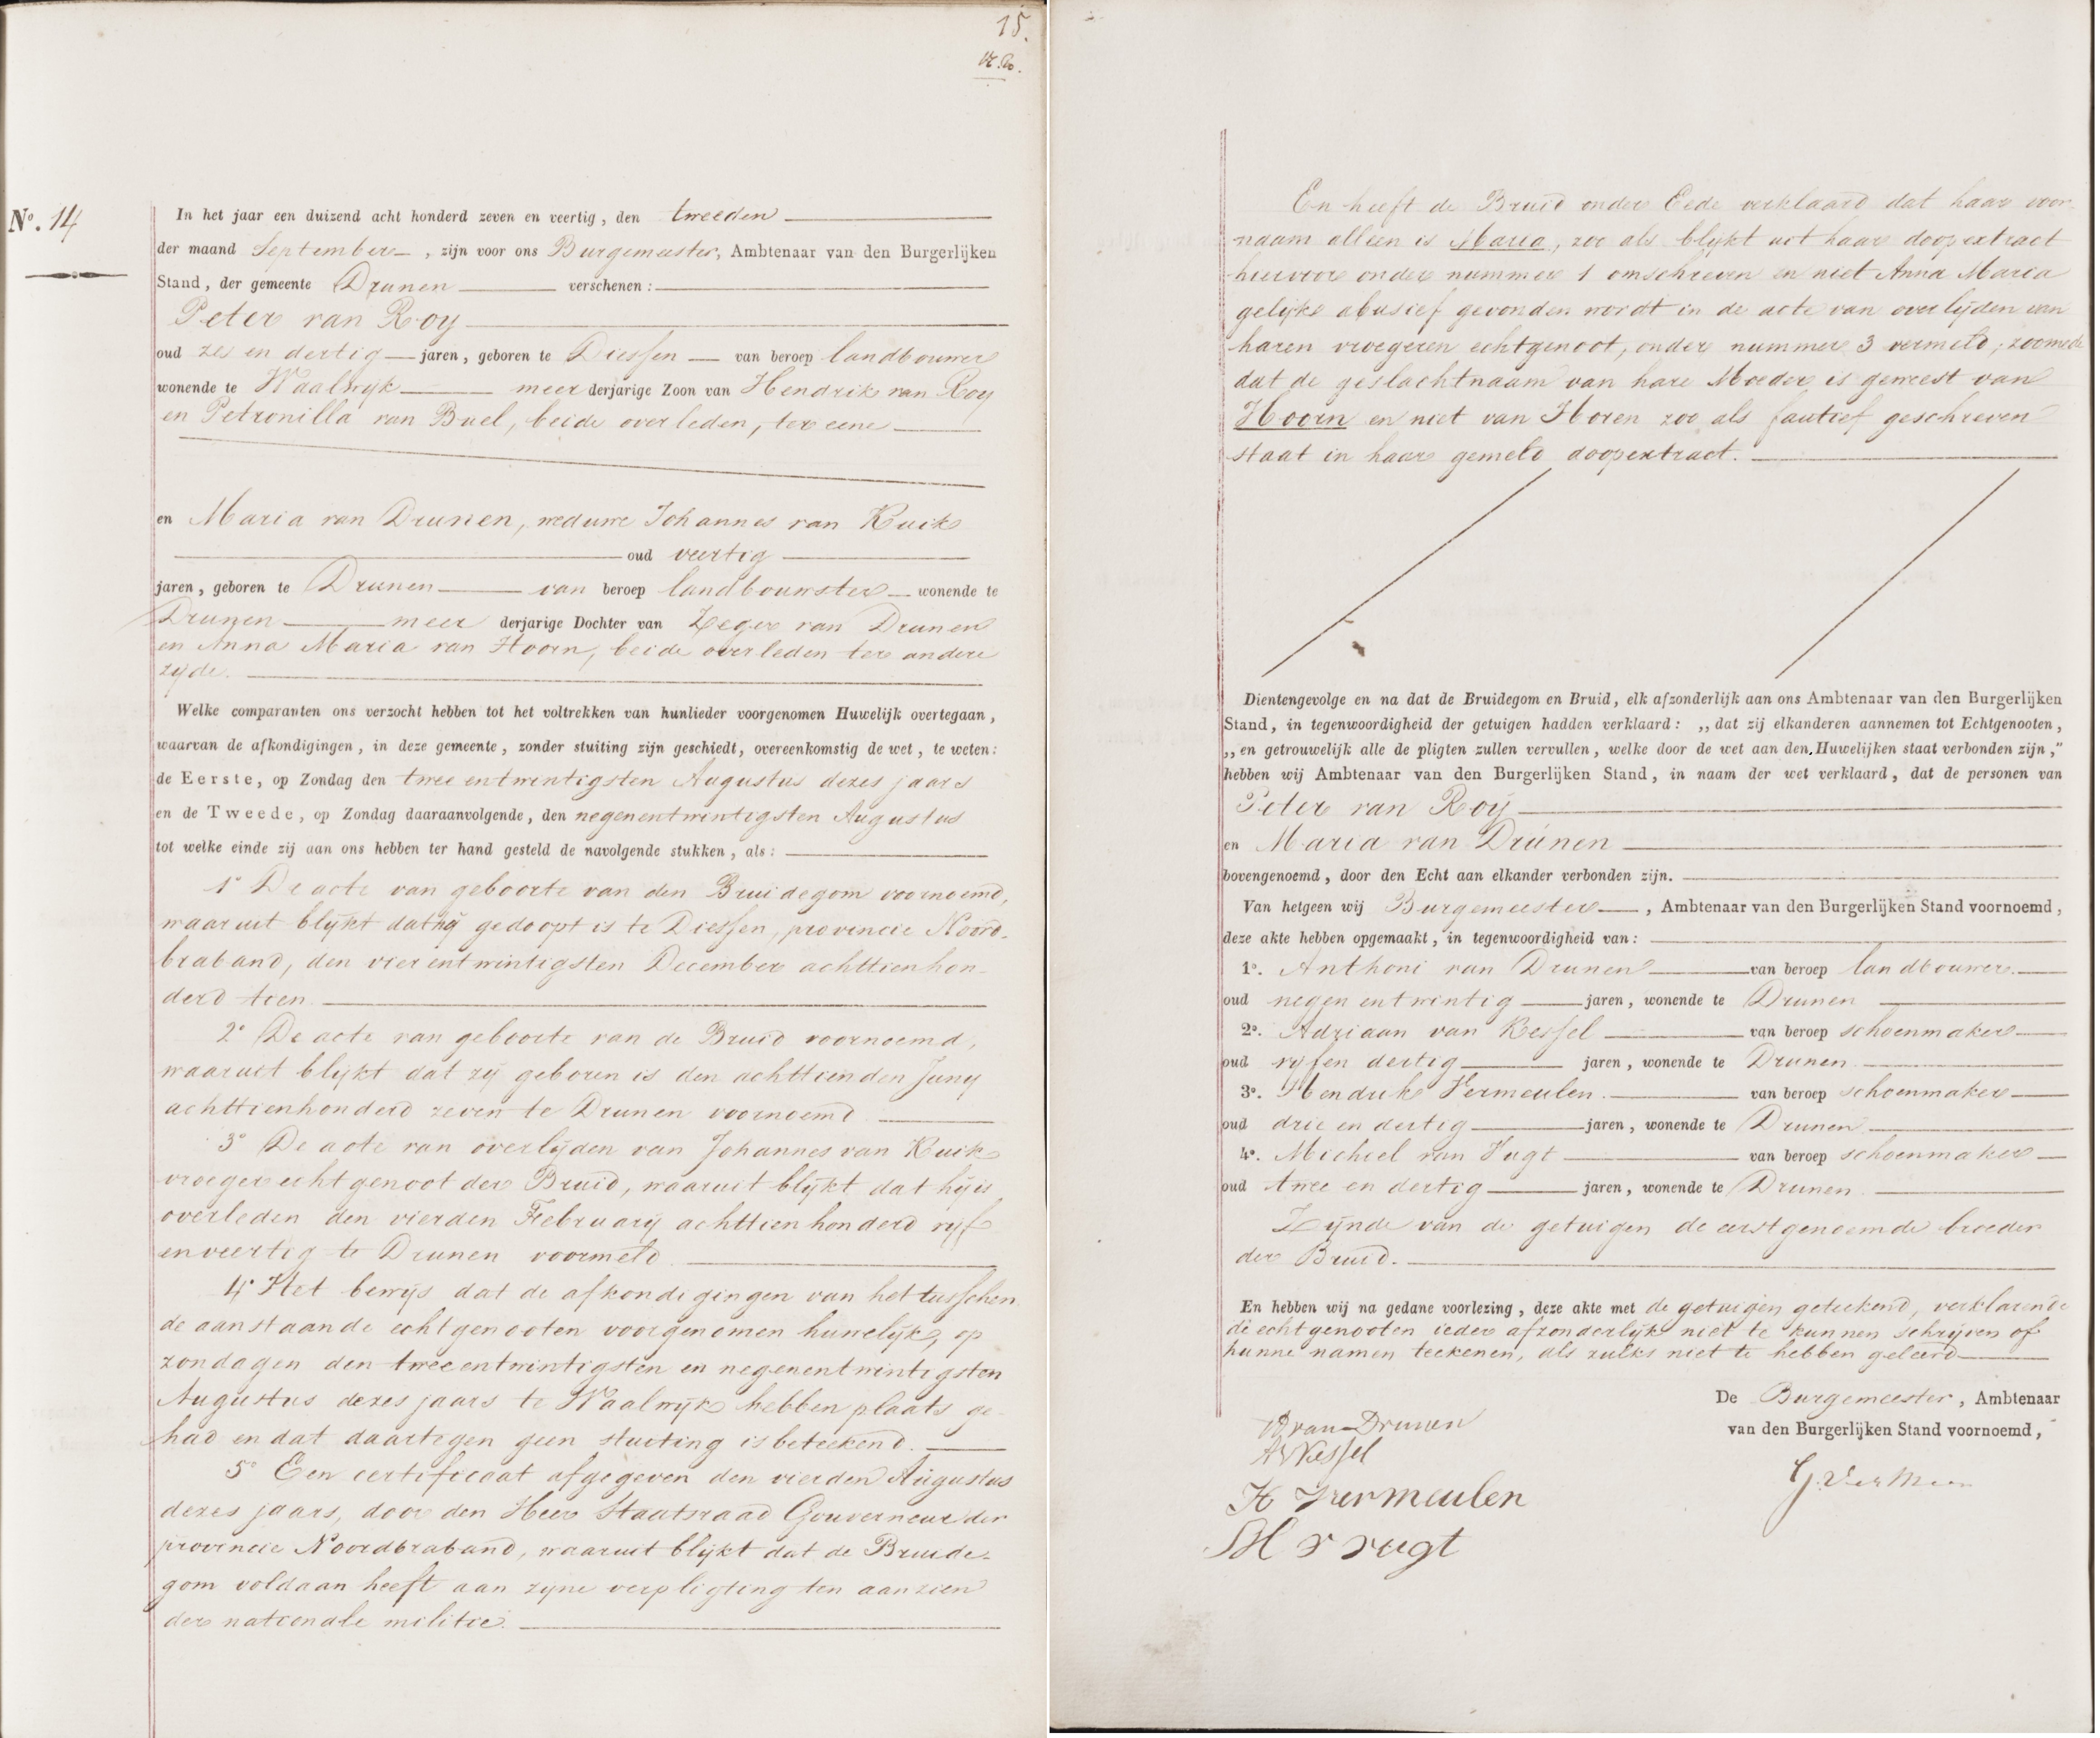 15.
N.º 14
In het jaar een duizend acht honderd zeven en veertig, den tweeden
der maand September, zijn voor ons Burgemeester, Ambtenaar van den Burgerlijken
Stand, der gemeente Drunen verschenen:
Peter van Roy
oud zes en dertig jaren, geboren te Diessen van beroep landbouwer
wonende te Waalwyk meer derjarige Zoon van Hendrik van Roy
en Petronilla van Buel, beide overleden, ter eene
en Maria van Drunen, weduwe Johannes van Kuik
oud veertig
jaren, geboren te Drunen van beroep landbouwster wonende te
Drunen meer derjarige Dochter van Zeger van Drunen
en Anna Maria van Hoorn, beide overleden ter andere
zyde.
Welke comparanten ons verzocht hebben tot het voltrekken van hunlieder voorgenomen Huwelijk overtegaan,
waarvan de afkondigingen, in deze gemeente, zonder stuiting zijn geschiedt, overeenkomstig de wet, te weten:
de Eerste, op Zondag den twee en twintigsten Augustus dezes jaars
en de Tweede, op Zondag daaraanvolgende, den negenentwintigsten Augustus
tot welke einde zij aan ons hebben ter hand gesteld de navolgende stukken, als:
1º De acte van geboorte van den Bruidegom voornoemd,
waaruit blykt dat hy gedoopt is te Diessen, provincie Noord-
braband, den vierentwintigsten December achttienhon-
derd tien.
2º De acte van geboorte van de Bruid voornoemd,
waaruit blykt dat zy geboren is den achttienden Juny
achttienhonderd zeven te Drunen voornoemd
3º De acte van overlyden van Johannes van Kuik
vroeger echtgenoot der Bruid, waaruit blykt dat hy is
overleden den vierden February achttienhonderd vyf
en veertig te Drunen voormeld
4º Het bewys dat de afkondigingen van het tusschen
de aanstaande echtgenooten voorgenomen huwelyk, op
zondagen den tweeentwintigsten en negenentwintigsten
Augustus dezes jaars te Waalwyk hebben plaats ge-
had en dat daartegen geen stuiting is beteekend.
5º Een certificaat afgegeven den vierden Augustus
dezes jaars, door den Heer Staatsraad Gouverneur der
provincie Noordbraband, waaruit blykt dat de Bruide-
gom voldaan heeft aan zyne verpligting ten aanzien
der nationale militie.
En heeft de Bruid onder Eede verklaard dat haar voor-
naam alleen is Maria, zoo als blykt uit haar doopextract
hiervoor onder nummer 1 omschreven en niet Anna Maria
gelyk abusief gevonden wordt in de acte van overlyden van
haren vroegeren echtgenoot, onder nummer 3 vermeld; zoomede
dat de geslachtnaam van hare Moeder is geweest van
Hoorn en niet van Horen zoo als fautief geschreven
staat in haar gemeld doopextract.
Dientengevolge en na dat de Bruidegom en Bruid, elk afzonderlijk aan ons Ambtenaar van den Burgerlijken
Stand, in tegenwoordigheid der getuigen hadden verklaard: ,,dat zij elkanderen aannemen tot Echtgenooten,
,,en getrouwelijk alle de pligten zullen vervullen, welke door de wet aan den Huwelijken staat verbonden zijn,"
hebben wij Ambtenaar van den Burgerlijken Stand, in naam der wet verklaard, dat de personen van
Peter van Roÿ
en Maria van Drúnen
bovengenoemd, door den Echt aan elkander verbonden zijn.
Van hetgeen wij Burgemeester, Ambtenaar van den Burgerlijken Stand voornoemd,
deze akte hebben opgemaakt, in tegenwoordigheid van:
1º. Anthoni van Drunen van beroep landbouwer.
oud negen en twintig jaren, wonende te Drunen
2º. Adriaan van Kessel van beroep schoenmaker
oud vyf en dertig jaren, wonende te Drunen
3º. Hendrik Vermeulen. van beroep schoenmaker
oud drie en dertig jaren, wonende te Drunen
4º. Michiel van Vugt van beroep schoenmaker
oud twee en dertig jaren, wonende te Drunen
Zynde van de getuigen de eerstgenoemde broeder
der Bruid.
En hebben wij na gedane voorlezing, deze akte met de getuigen geteekend, verklarende
de echtgenooten ieder afzonderlyk niet te kunnen schryven of
hunne namen teekenen, als zulks niet te hebben geleerd
De Burgemeester, Ambtenaar
van den Burgerlijken Stand voornoemd,
van Drunen
A v Kessel
H Vermeulen
M v vugt